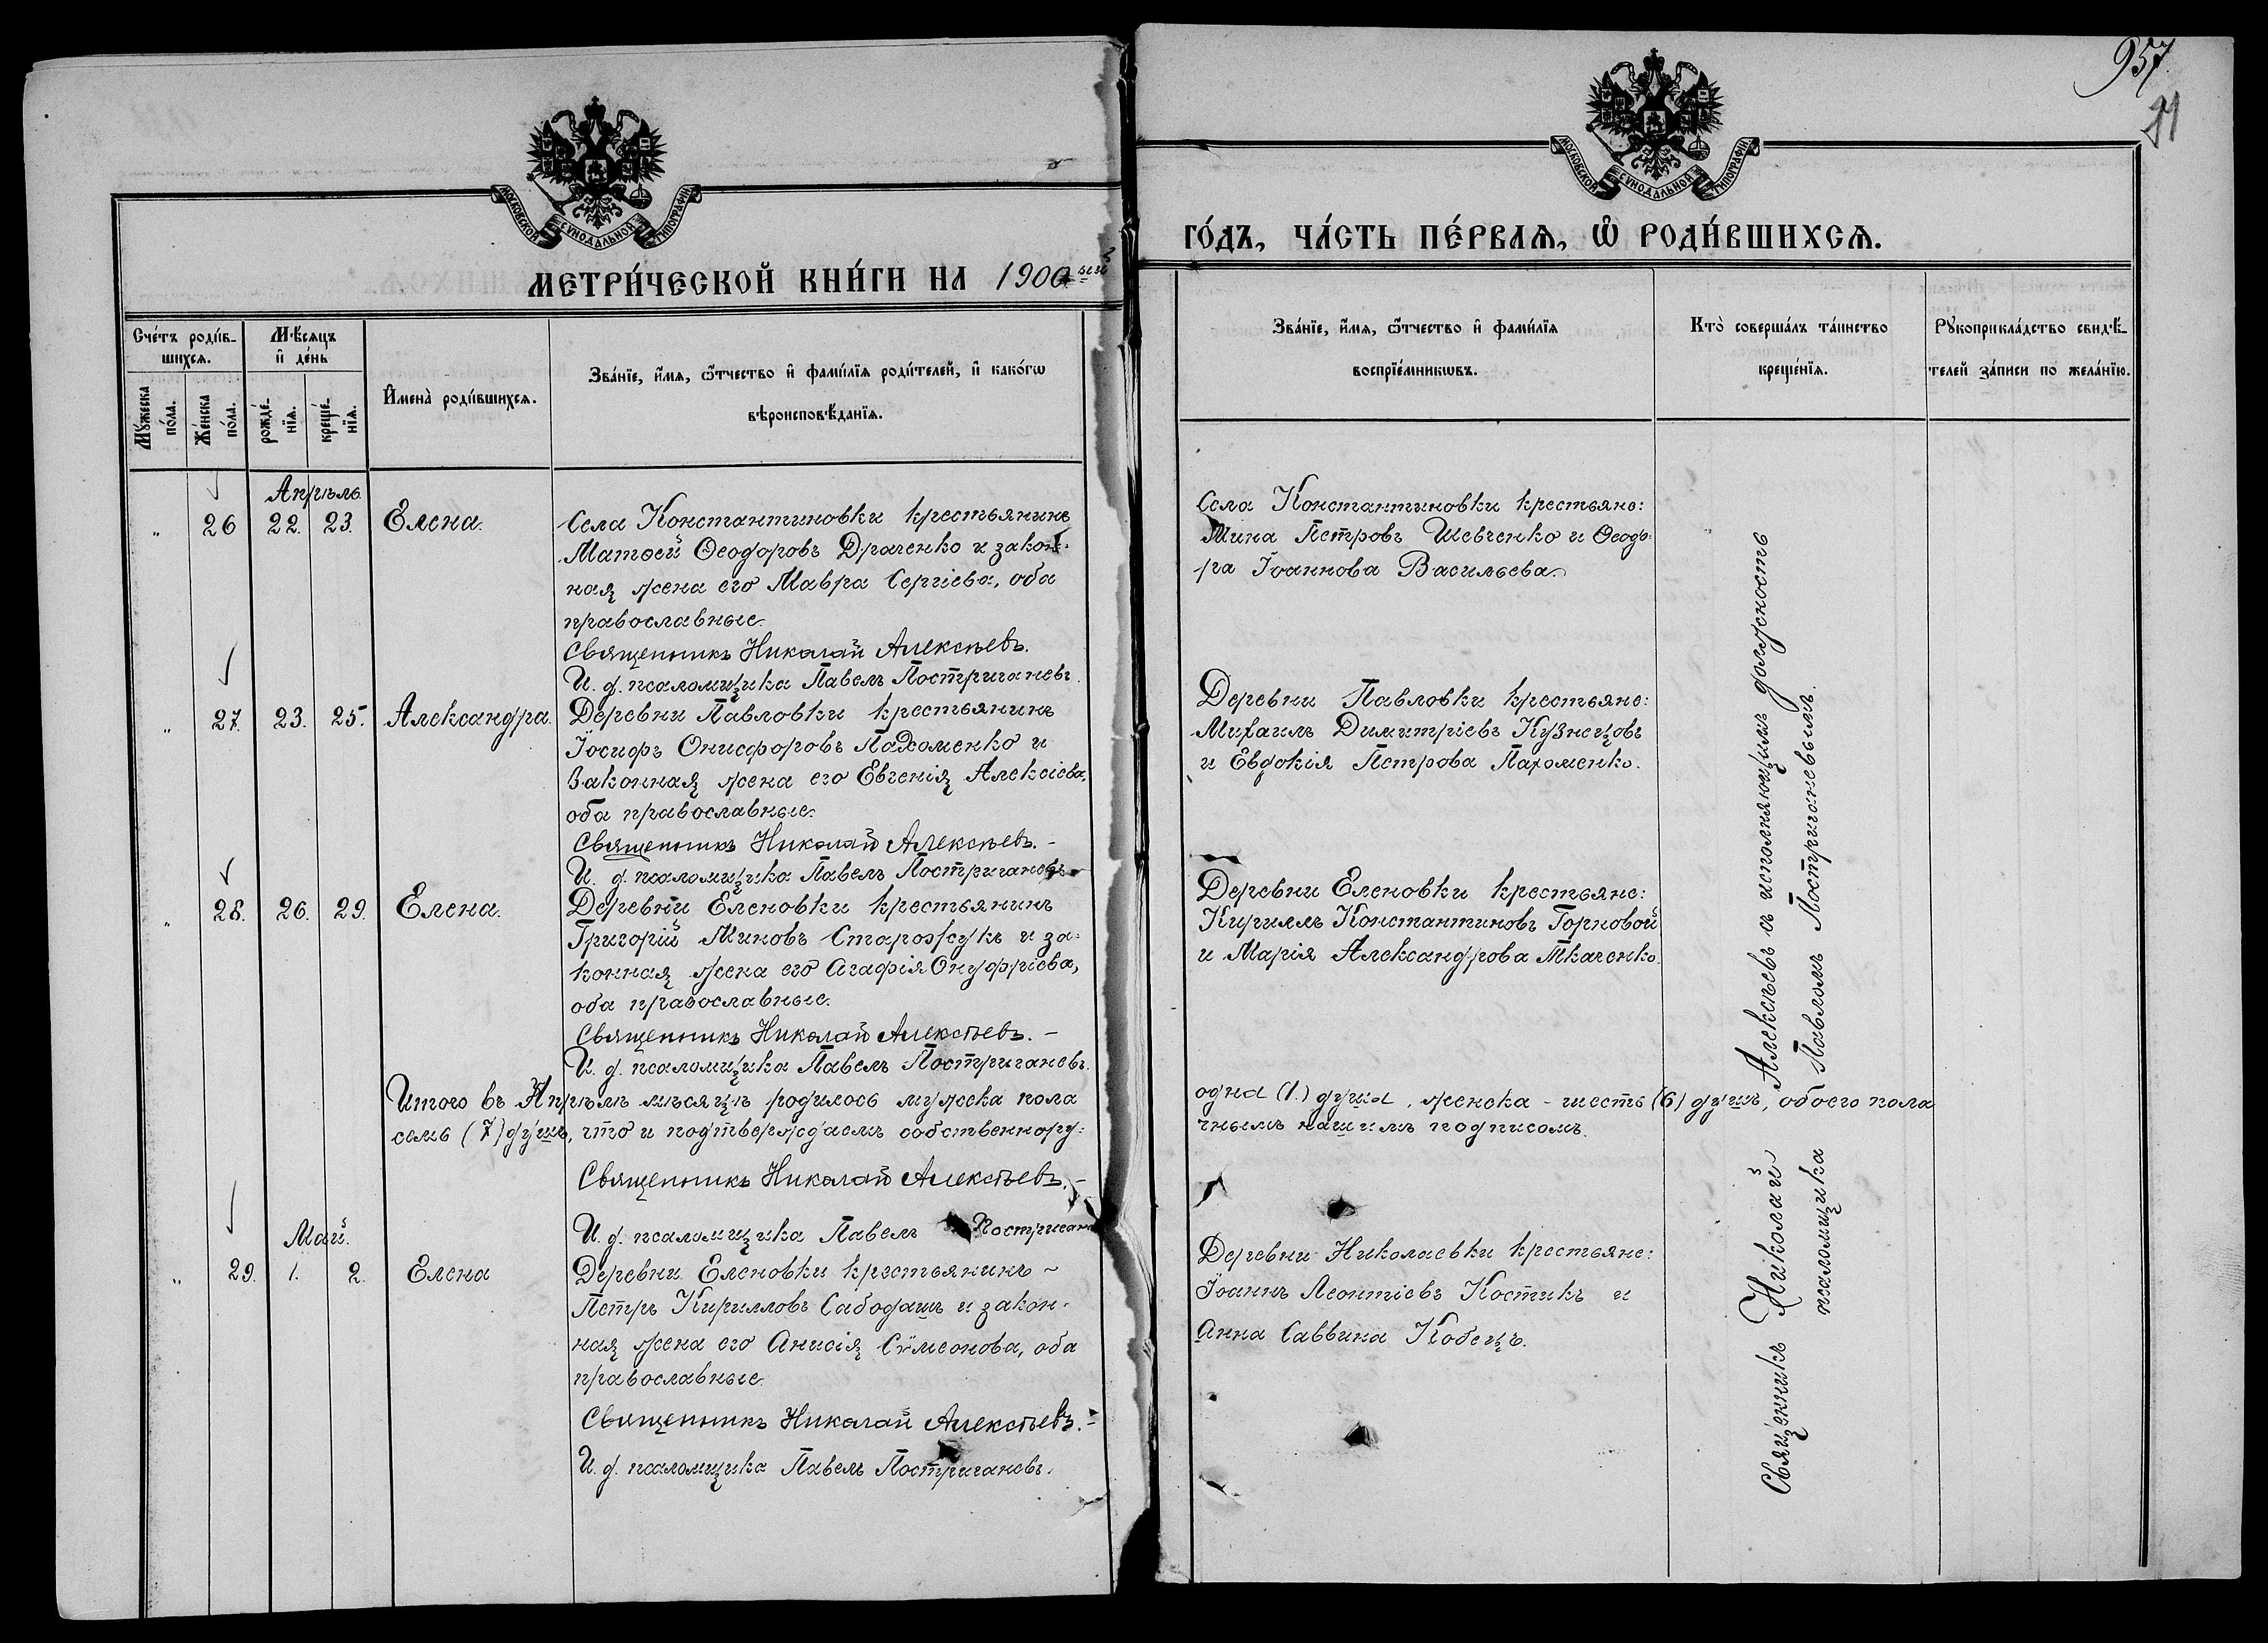 957
МОСКОВСКОЙ СУНОДАЛЬНОЙ ТИПОГРАФІИ
МОСКОВСКОЙ СУНОДАЛЬНОЙ ТИПОГРАФІИ
МЕТРИ́ЧЕСКОЙ КНИ́ГИ НА 1900ый
ГО́ДЪ, ЧА́СТЬ ПЕ́РВАѦ, Ѡ҆ РОДИ́ВШИХСѦ.
Сче́тъ роди́в-
шихсѧ.
Мꙋ́жеска по́ла.
Же́нска по́ла.
Мѣ́сѧцъ
и҆ де́нь
рожде́-нїѧ.
креще́-нїѧ.
И҆мена̀ роди́вшихсѧ.
Зва́нїе, и҆́мѧ, ѻ҆́тчество и҆ фами́лїѧ роди́телей, и҆ како́гѡ
вѣроисповѣ́данїѧ.
Зва́нїе, и҆́мѧ, ѻ҆́тчество и҆ фами́лїѧ
воспрїе́мникѡвъ.
Кто̀ соверша́лъ та́инство
креще́нїѧ.
Рꙋкоприкла́дство свидѣ́-
телей за́писи по жела́нїю.
Апрѣль.
" 26 22. 23. Елена.
Села Константиновки крестьянинъ
Матѳей Ѳеодоровъ Драченко и закон-
ная жена его Мавра Сергіева, оба
православные.
Священникъ Николай Алексѣевъ.
И. д. псаломщика Павелъ Постригановъ.
Села Константиновки крестьяне:
Мина Петровъ Шевченко и Ѳеодо-
ра Іоаннова Васильева.
" 27. 23. 25. Александра.
Деревни Павловки крестьянинъ
Іосифъ Онисифоровъ Пахоменко и
законная жена его Евгенія Алексіева,
оба православные.
Священникъ Николай Алексѣевъ. -
И. д. псаломщика Павелъ Постригановъ
Деревни Павловки крестьяне:
Михаилъ Димитріевъ Кузнецовъ
и Евдокія Петрова Пахоменко.
" 28. 26. 29. Елена.
Деревни Еленовки крестьянинъ
Григорій Миновъ Старожукъ и за-
конная жена его Агафія Онуфріева,
оба православные.
Священникъ Николай Алексѣевъ. -
И. д. псаломщика Павелъ Постригановъ.
Деревни Еленовки крестьяне:
Кириллъ Константиновъ Горновой
и Марія Александрова Ткаченко.
Итого въ Апрѣлѣ мѣсяцѣ родилось мужска пола одна (1.) душа, женска - шесть (6) душъ, обоего пола
семь (7) душъ, что и подтверждаемъ собственноручнымъ нашимъ подписомъ.
Священникъ Николай Алексѣевъ. -
И. д. псаломщика Павелъ Постриган
Май.
" 29. 1. 2. Елена
Деревни Еленовки крестьянинъ ~
Петръ Кирилловъ Сабодашъ и закон-
ная жена его Анисія Сѵмеонова, оба
православные.
Священникъ Николай Алексѣевъ. -
И. д. псаломщика Павелъ Постригановъ.
Деревни Николаевки крестьяне:
Іоаннъ Леонтіевъ Костикъ и
Анна Саввина Кобецъ.
Священникъ Николай Алексѣевъ съ исполняющимъ должность
псаломщика Павломъ Постригановымъ.